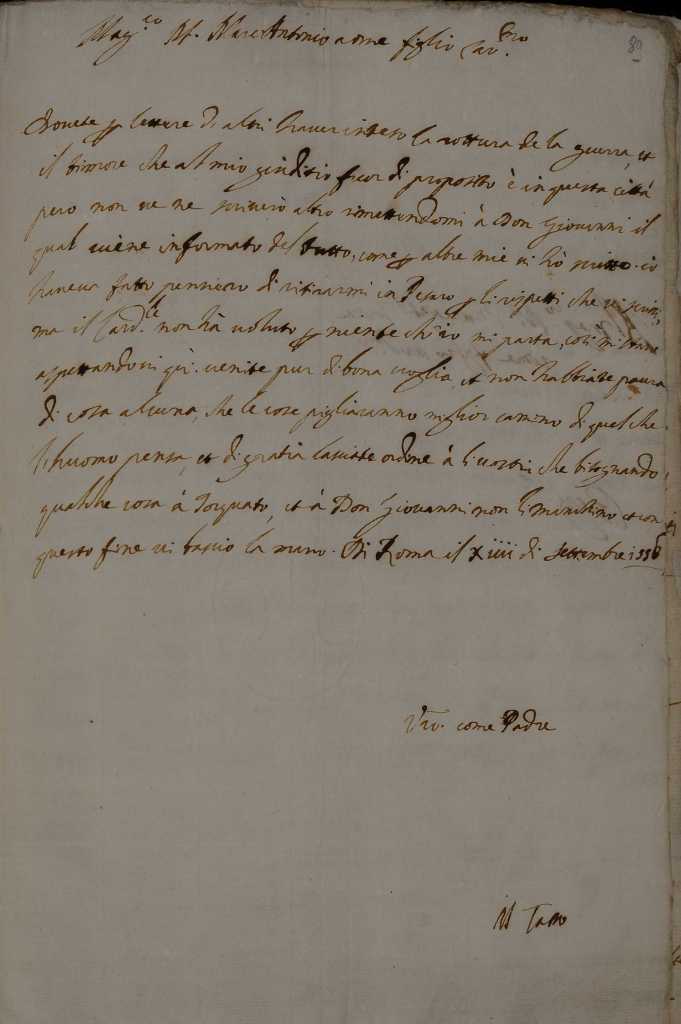 Mag.co M. MarcAntonio a me figlio car.mo
80
Dovete p lettere di altri haver inteso la rottura de la guerra, et
il timore che al mio giuditio fuor di proposito è in questa città
pero non ve ne scriverò altro rimettendomi à Don Giovanni il
qual viene informato del tutto, come p altre mie vi hò scritto. io
haveva fatto pensiero di ritirarmi in Pesaro p li rispetti che vi scrissi,
ma il Card.le non hà voluto p niente ch'io mi parta, così mi starò
aspettandovi quì. venite pur di bona voglia, et non habbiate paura
di cosa alcuna, che le cose pigliaranno miglior camino di quel che
l'huomo pensa, et di gratia lasciate ordine à li vostri che bisognando
qualche cosa à Torquato, et à Don Giovanni non li manchino et con
questo fine vi bascio la mano. Di Roma il xiiii di settembre 1556
Vro. come Padre
Il Tasso